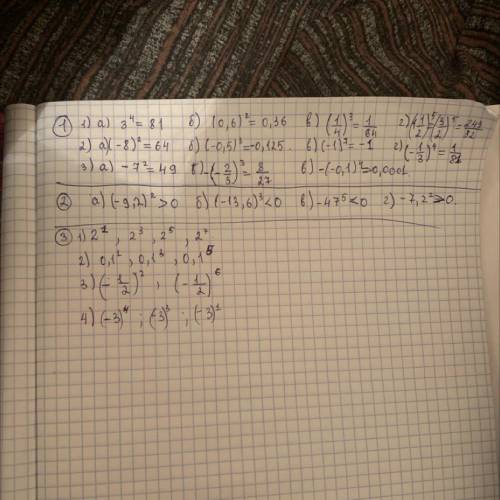 ① 1) а) 3⁴ = 81 б) (0,6)² = 0,36 в) (1/4)³ = 1/64 г) (1 1/2)⁵ = (3/2)⁵ = 243/32
2) а) (-8)² = 64 б) (-0,5)³ = -0,125 в) (-1)⁷ = -1 г) (-1/3)⁴ = 1/81
3) а) -7² = 49 б) -(-2/3)³ = 8/27 в) -(-0,1)⁴ = 0,0001
② а) (-9,2)² > 0 б) (-13,6)³ < 0 в) -47⁵ < 0 г) -7,2² > 0.
③ 1) 2¹, 2³, 2⁵, 2⁷
2) 0,1², 0,1³, 0,1⁵
3) (-1/2)², (-1/2)⁶
4) (-3)⁴; (-3)³; (-3)¹